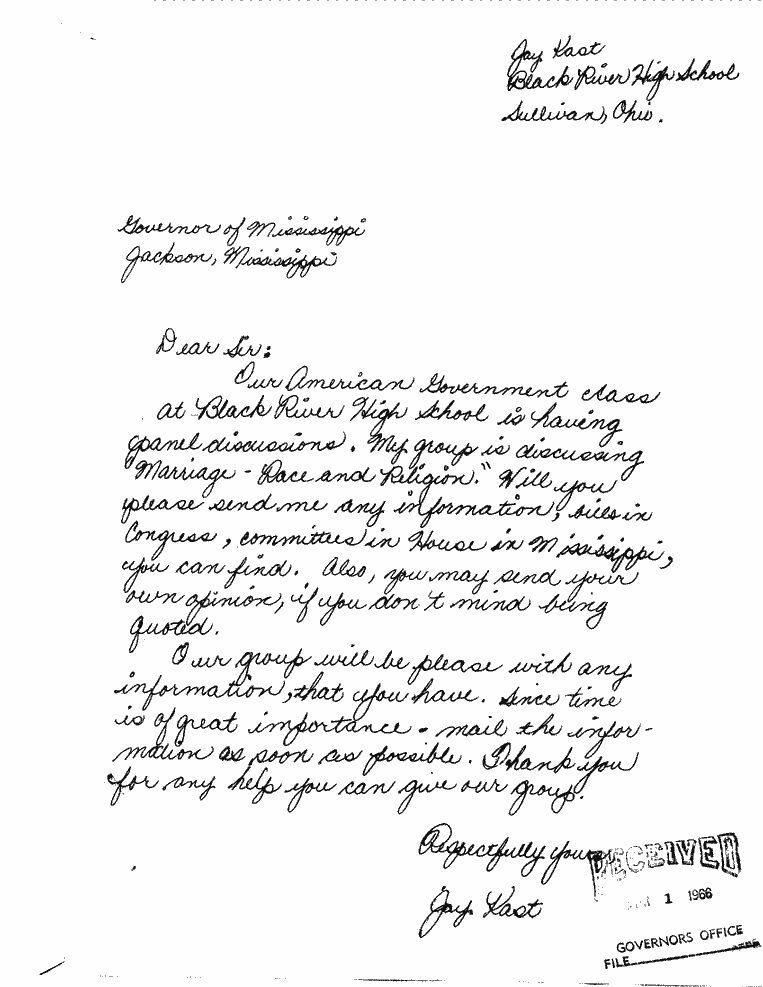 Jay Kast
Black River High School
Sullivan, Ohio.
Governor of Mississippi
Jackson, Mississippi
Dear Sir:
Our American Government class
at Black River High School is having
panel discussions. My group is discussing
"Marriage - Race and Religion." Will you
please send me any information, bills in
Congress, committees in House in Mississippi,
you can find. Also, you may send your
own opinion, if you don't mind being
quoted.
Our group will be please with any
information, that you have. Since time
is of great importance - mail the infor-
mation as soon as possible. Thank you
for any help you can give our group.
Respectfully yours
Jay Kast
RECEIVED
1 1966
GOVERNORS OFFICE
FILE